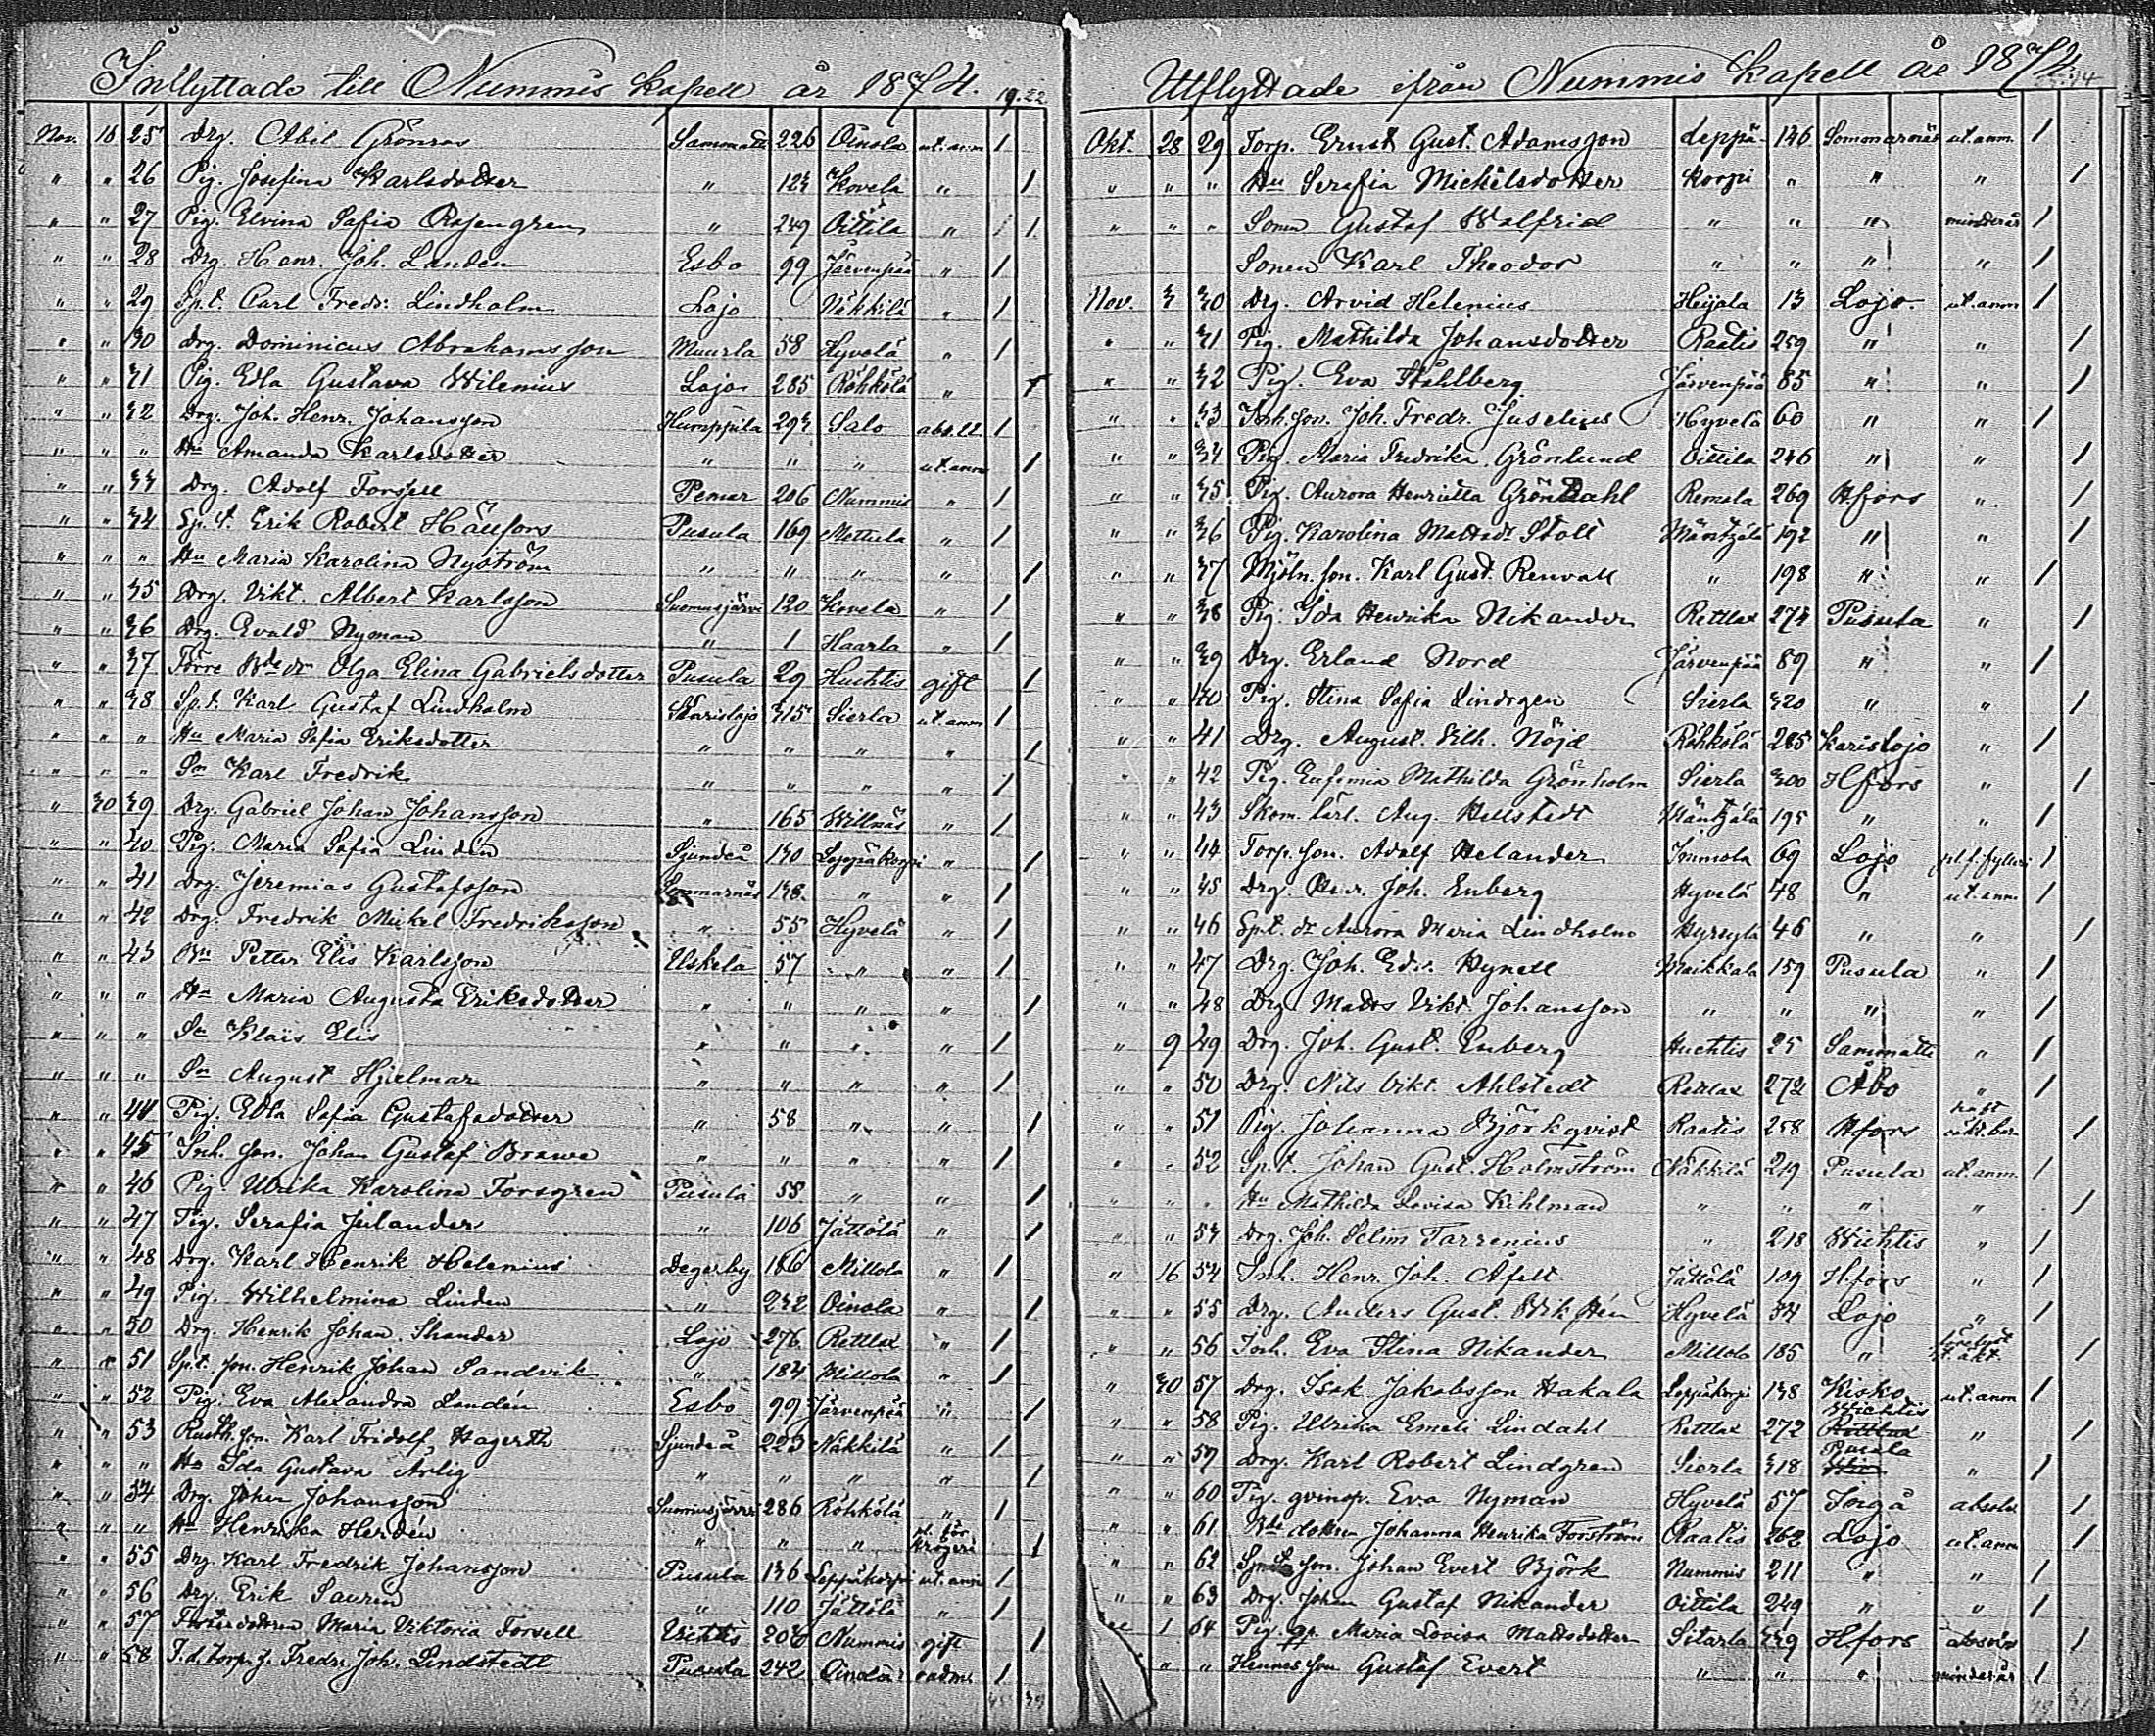 Inflyttade till Nummis kapell år 1874. 19. 22
Nov. 18 25 Drg. Abel Grönroos Sammatti 226 Oinola ut. anm 1
" " 26 Pig. Josefina Karlsdotter " 123 Kovela " 1
" " 27 Pig. Elvina Sofia Rosengren " 249 Oittila " 1
" " 28 Drg. Henr. Joh. Landén Esbo 99 Järvenpää " 1
" " 29 Sp.t. Carl Fredr. Lindholm Lojo Näkkilä " 1
" " 30 Drg. Dominicus Abrahamsson Muurla 58 Hyvelä " 1
" " 31 Pig. Edla Gustava Wilenius Lojo 285 Röhkölä " 1
" " 32 Drg. Joh. Henr. Johansson Humppila 293 Salo abs. ll. 1
" " " Hu Amanda Karlsdotter " " " ut. anm 1
" " 33 Drg. Adolf Forssell Pemar 206 Nummis " 1
" " 34 Sp.t. Erik Robert Hällfors Pusula 169 Mettula " 1
" " " Hu Maria Karolina Nyström " " " " 1
" " 35 Drg. Vikt. Albert Karlsson Suomusjärvi 120 Kovela " 1
" " 36 Drg. Evald Nyman " 1 Haarla " 1
" " 37 Förre Bde dr Olga Elina Gabrielsdotter Pusula 29 Huhtis gift 1
" " 38 Sp.t. Karl Gustaf Lindholm Karislojo 315 Sierla ut. anm 1
" " " Hu Maria Sofia Eriksdotter " " " " 1
" " " Sn Karl Fredrik " " " " 1
" 30 39 Drg. Gabriel Johan Johansson " 165 Willnäs " 1
" " 40 Pig. Maria Sofia Lindén Sjundeå 130 Leppäkorpi " 1
" " 41 Drg. Jeremias Gustafsson Sommarnäs 138 " " 1
" " 42 Drg. Fredrik Mickel Fredriksson " 55 Hyvelä " 1
" " 43 Bn Petter Elis Karlsson Uskela 57 " " 1
" " " Hu Maria Augusta Eriksdotter " " " " 1
" " " Sn Klais Elis " " " " 1
" " " Sn August Hjelmar " " " " 1
" " 44 Pig. Edla Sofia Gustafsdotter " 58 " " 1
" " 45 Inh. son. Johan Gustaf Brawe " " " " 1
" " 46 Pig. Ulrika Karolina Forsgren Pusula 58 " " 1
" " 47 Pig. Serafia Julander " 106 Jättölä " 1
" " 48 Drg. Karl Henrik Helenius Degerby 186 Millola " 1
" " 49 Pig. Wilhelmina Linden " 232 Oinola " 1
" " 50 Drg. Henrik Johan Thander Lojo 276 Rettlax " 1
" " 51 Sp.t. son. Henrik Johan Sandvik " 184 Millola " 1
" " 52 Pig. Eva Alexandra Landén Esbo 99 Järvenpää " 1
" " 53 Rusth. son. Karl Fridolf Hagerth Sjundeå 223 Näkkilä " 1
" " " Hu Ida Gustava Ärlig " " " " 1
" " 54 Drg. Johan Johansson Suomusjärvi 286 Röhkölä " 1
" " " Hu Henrika Herdén " " " krögeri 1
" " 55 Drg. Karl Fredrik Johansson Pusula 136 Leppäkorpi ut. anm 1
" " 56 Drg. Erik Saurén " 110 Jättölä " 1
" " 57 Maria Viktoria Forsell Vichtis 206 Nummis gift 1
" " 58 F.d. torp. j. Fredr. Joh. Lindstedt Pusula 242 Oinola 1
Utflyttade ifrån Nummis kapell år 1874.
Okt. 28 29 Torp. Ernst Gust. Adamsson Leppä- 146 Sommarnäs ut. anm. 1
" " " Hu Serafia Mickelsdotter korpi " " " 1
" " " Sonen Gustaf Walfrid " " " minderår 1
Sonen Karl Theodor " " " " 1
Nov. 3 30 Drg. Arvid Helenius Heijala 13 Lojo ut. anm 1
" " 31 Pig. Mathilda Johansdotter Raatis 259 " " 1
" " 32 Pig. Eva Ståhlberg Järvenpää 85 " " 1
" " 33 Inh. son. Joh. Fredr. Juselius Hyvelä 60 " " 1
" " 34 Pig. Maria Fredrika Grönlund Oittila 246 " " 1
" " 35 Pig. Aurora Henrietta Gröndahl Remala 269 Hfors " 1
" " 36 Pig. Karolina Mattsdr Stoll Mäntsälä 192 " " 1
" " 37 Mjöln. son. Karl Gust. Renvall " 198 " " 1
" " 38 Pig. Ida Henrika Nikander Rettlax 274 Pusula " 1
" " 39 Drg. Erland Nord Järvenpää 89 " " 1
" " 40 Pig. Stina Sofia Lindrgen Sierla 320 " " 1
" " 41 Drg. August Vilh. Nöjd Röhkölä 285 Karislojo " 1
" " 42 Pig. Eufemia Mathilda Grönholm Sierla 300 Hfors " 1
" " 43 Skom. lärl. Aug. Hellstedt Mäntsälä 195 " " 1
" " 44 Torp. son. Adolf Helander Immola 69 Lojo pl. f. fylleri 1
" " 45 Drg. Henr. Joh. Enberg Hyvelä 48 " ut. anm. 1
" " 46 Sp.t. dr Aurora Maria Lindholm Hyrsylä 46 " " 1
" " 47 Drg. Joh. Edv. Rynell Maikkala 159 Pusula " 1
" " 48 Drg. Matts Vikt. Johansson " " " " 1
" 9 49 Drg. Joh. Gust. Enberg Huhtis 25 Sammatti " 1
" " 50 Drg. Nils Vikt. Ahlstedt Rettlax 272 Åbo " 1
" " 51 Pig. Johanna Björkqvist Raatis 258 Hfors haft oäkt. bar. 1
" " 52 Sp.t. Johan Gust. Holmström Näkkilä 219 Pusula ut. anm. 1
" " " Hu Mathilda Lovisa Kihlman " " " " 1
" " 53 Drg. Joh. Selim Tarrenius " 218 Wichtis " 1
" 16 54 Inh. Henr. Joh. Åfelt Jättölä 109 Hfors " 1
" " 55 Drg. Anders Gust. Wikstén Hyvelä 34 Lojo " 1
" " 56 Inh. Eva Stina Nikander Millola 185 " 1
" 30 57 Drg. Isak Jakobsson Hakala Leppäkorpi 138 Kisko ut. anm 1
" " 58 Pig. Ulrika Emeli Lindahl Rettlax 272 Wichtis " 1
" " 59 Drg. Karl Robert Lindgren Sierla 318 Pusula " 1
" " 60 Pig. qvinsp. Eva Nyman Hyvelä 57 Borgå absolv 1
" " 61 Bde dottren Johanna Henrika Forström Raatis 262 Lojo ut. anm 1
" " 62 Sp.t. son. Johan Evert Björk Nummis 211 " " 1
" " 63 Drg. Johan Gustaf Nikander Oittila 249 " " 1
Dec 1 64 Pig. qp. Maria Lovisa Mattsdotter Sitarla 339 Hfors absolv 1
" " Hennes son Gustaf Evert " " " minderår 1